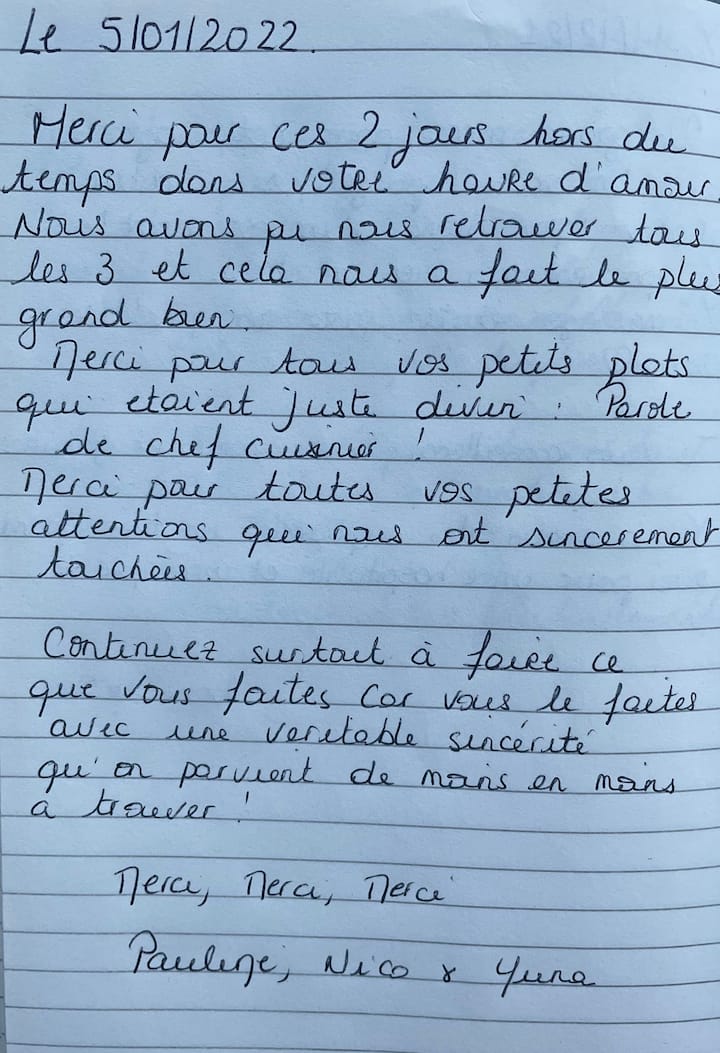 Le 5/01/2022.
Merci pour ces 2 jours hors du
temps dans votre havre d'amour.
Nous avons pu nous retrouver tous
les 3 et cela nous a fait le plus
grand bien.
Merci pour tous vos petits plats
qui etaient juste divin : Parole
de chef cuisinier !
Merci pour toutes vos petites
attentions qui nous ont sincerement
touchées.
Continuez surtout à faire ce
que vous faites car vous le faites
avec une veritable sincérité
qu'on parvient de moins en moins
a trouver !
Merci, Merci, Merci
Pauline, Nico & Yuna